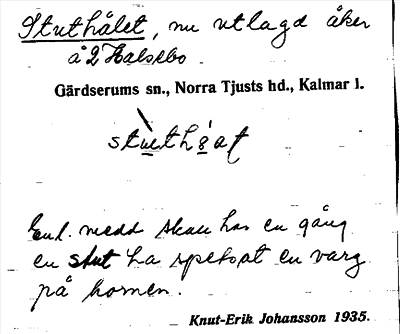 Stuthålet, nu utlagd åker
å 2 Halsebo.
Gärdserums sn., Norra Tjusts hd., Kalmar l.
Enl. medd skall här en gång
en stut ha spetsat en varg
på hornen.
Knut-Erik Johansson 1935.